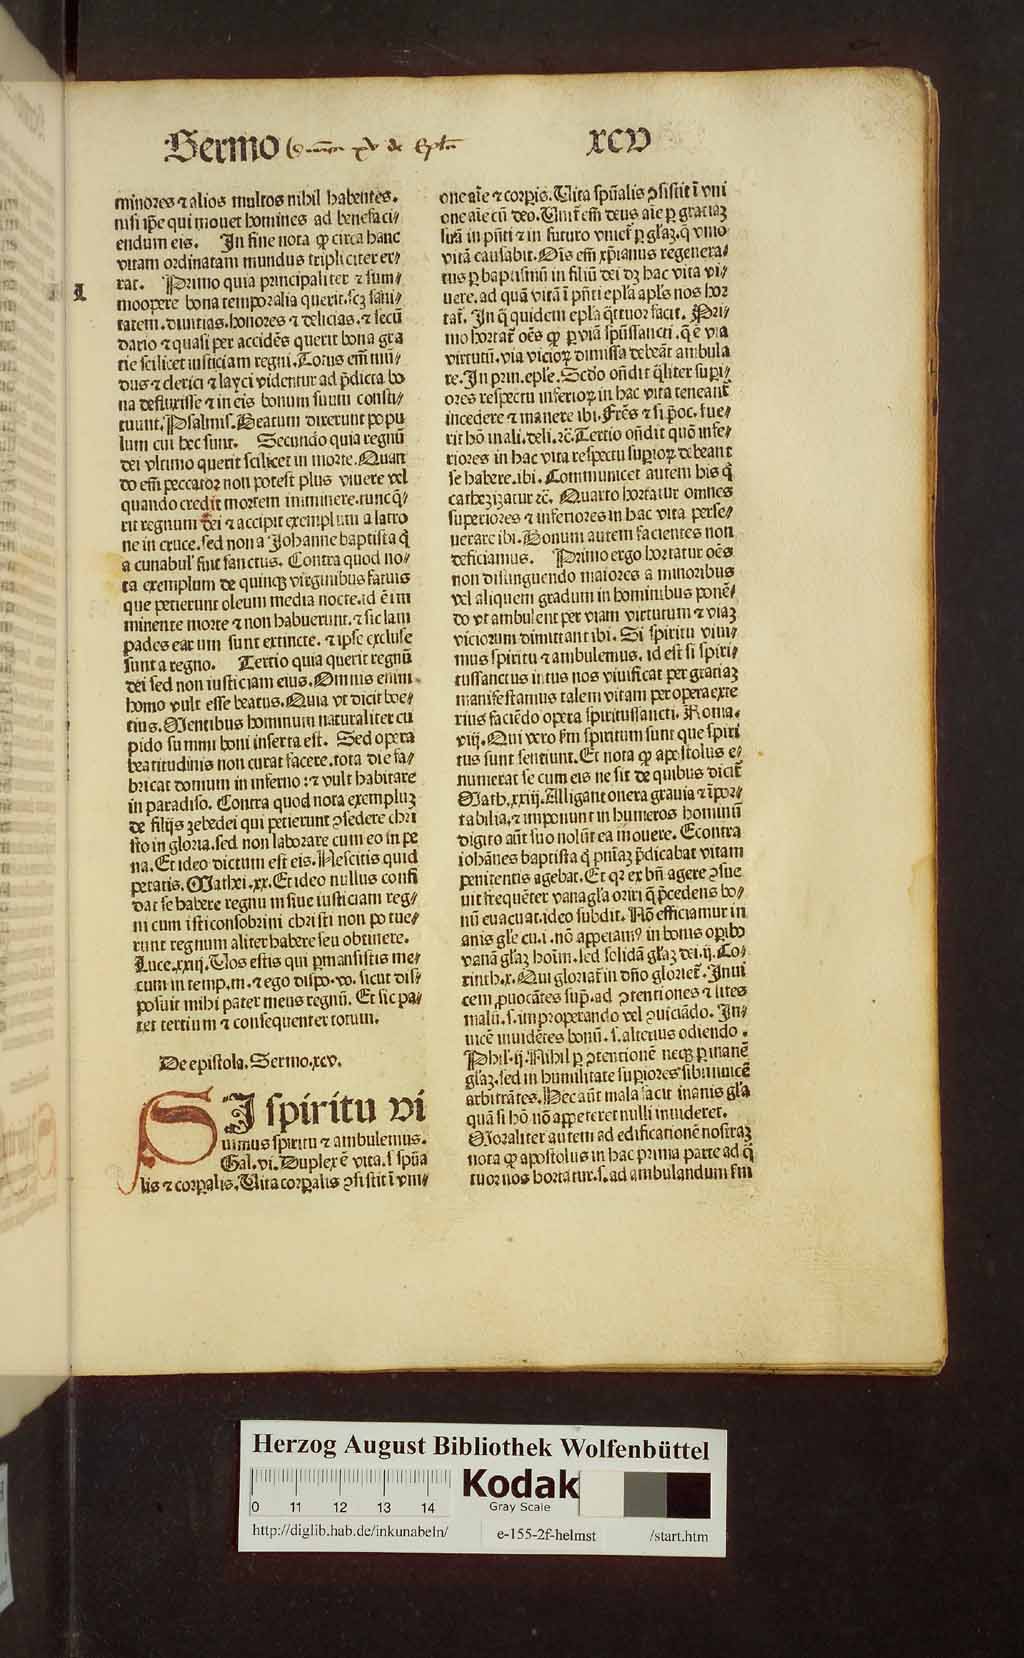 Sermo
xcv
minores ⁊ alios multos nihil habentes.
nisi ip̄e qui mouet homines ad benefaci⸗
endum eis. In fine nota ꝙ circa hanc
vitam ordinatam mundus tripliciter er⸗
rat. Primo quia principaliter ⁊ sum⸗
moopere bona temporalia querit.scꝫ sani⸗
tatem.diuitias.honores ⁊ delicias.⁊ secū
dario ⁊ quasi per accidēs querit bona gra
tie scilicet iusticiam regni.Totus em̄ mū⸗
dus ⁊ clerici ⁊ layci videntur ad p̄dicta bo
na defluxisse ⁊ in eis bonum suum consti⸗
tuunt.Psalmis.Beatum dixerunt popu
lum cui hec sunt. Secundo quia regnū
dei vltimo querit scilicet in morte.Quan
do em̄ peccator non potest plus viuere vel
quando credit mortem imminere.tunc q̄⸗
rit regnum dei ⁊ accipit exemplum a latro
ne in cruce.sed non a Johanne baptista q̄
a cunabul' fuit sanctus. Contra quod no⸗
ta exemplum de quinqꝫ virginibus fatuis
que petierunt oleum media nocte.id ē im
minente morte ⁊ non habuerunt.⁊ sic lam
pades earum sunt extincte.⁊ ipse excluse
sunt a regno. Tertio quia querit regnū
dei sed non iusticiam eius.Omnis enim
homo vult esse beatus.Quia vt dicit boe⸗
tius.Mentibus hominum naturaliter cu
pido summi boni inserta est. Sed opera
beatitudinis non curat facere.tota die fa⸗
bricat domum in inferno:⁊ vult habitare
in paradiso. Contra quod nota exempluꝫ
de filijs zebedei qui petierunt ꝯsedere chri
sto in gloria.sed non laborare cum eo in pe
na.Et ideo dictum est eis.Nescitis quid
petatis.Mathei.xx.Et ideo nullus confi
dat se habere regnum siue iusticiam reg⸗
ni cum isti consobrini christi non potue⸗
runt regnum aliter habere seu obtinere.
Luce.xxij.Vos estis qui ꝑmansistis me⸗
cum in temp.m.⁊ ego dispo.vo.sicut dis⸗
posuit mihi pater meus regnū. Et sic pa⸗
tet tertium ⁊ consequenter totum.
De epistola.Sermo.xcv.
SI spiritu vi
uimus spiritu ⁊ ambulemus.
Gal.vi.Duplex ē vita.s̄ spūa
lis ⁊ corꝑalis.Vita corꝑalis ꝯsistit ī vni⸗
one aīe ⁊ corꝑis.Vita spūalis ꝯsistit ī vni
one aīe cū deo.Vnit̄ em̄ deus aīe ꝑ gratiaꝫ
suā in pn̄ti ⁊ in futuro vniet̄ ꝑ gl̄aꝫ.q̄ vnio
vitā causabit.Oīs em̄ xp̄ianus regenera⸗
tus ꝑ baptismū in filiū dei dꝫ hac vita vi⸗
uere.ad quā vitā ī pn̄ti epl̄a apl̄s nos hor
tat̄. In q̄ quidem epl̄a q̄ttuor facit. Pri⸗
mo hortat̄ oēs ꝙ ꝑ viā spūssancti.q̄ ē via
virtutū.via vicioꝝ dimissa debeāt ambula
re.In prin.epl̄e.Scd̄o on̄dit q̄liter suꝑi⸗
ores respectu inferioꝝ in hac vita teneant̄
incedere ⁊ manere ibi.Fr̄es ⁊ si p̄oc.fue⸗
rit hō in ali.deli.⁊c̄.Tertio on̄dit quō infe⸗
riores in hac vita respectu suꝑioꝝ debeant
se habere.ibi.Communicet autem his q̄
cathezizatur ⁊c̄. Quarto hortatur omnes
superiores ⁊ inferiores in hac vita perse⸗
uerare ibi.Bonum autem facientes non
deficiamus. Primo ergo hortatur oēs
non distinguendo maiores a minoribus
vel aliquem gradum in hominibus ponē⸗
do vt ambulent per viam virtutum ⁊ viaꝫ
viciorum dimittant ibi. Si spiritu viui⸗
mus spiritu ⁊ ambulemus. id est si spiri⸗
tussanctus intus nos viuificat per gratiaꝫ
manifestamus talem vitam per opera exte
rius faciēdo opera spiritussancti. Roma.
viij.Qui vero s̄m spiritum sunt que spiri
tus sunt sentiunt.Et nota ꝙ apostolus e⸗
numerat se cum eis ne sit de quibus dicit̄
Math.xxiij.Alligant onera grauia ⁊ īpor⸗
tabilia.⁊ imponunt in humeros hominū
digito aūt suo nolūt ea mouere. Econtra
iohānes baptista q̄ pn̄iaꝫ p̄dicabat vitam
penitentis agebat. Et qꝛ ex bn̄ agere ꝯsue
uit frequēter vana gl̄a oriri q̄ p̄cedens bo⸗
nū euacuat.ideo subdit. Nō efficiamur in
anis gl̄e cu.i.nō appetamꝰ in bonis oꝑibꝰ
vanā gl̄aꝫ hoīm.sed solidā gl̄aꝫ dei.ij.Co⸗
rinth.x.Qui gloriat̄ in dn̄o gloriet̄.Inui
cem ꝓuocātes suꝑ.ad ꝯtentiones ⁊ lites
malū.s.improperando vel ꝯuiciādo. In⸗
uicē inuidētes bonū.s.alterius odiendo.
Phil.ij.Nihil ꝑ ꝯtentionē neqꝫ ꝑ inanē
gl̄aꝫ.sed in humilitate suꝑiores sibi inuicē
arbitrātes.Hec aūt mala facit inanis gl̄a
quā si hō nō appeteret nulli inuideret.
Moraliter autem ad edificationē nostraꝫ
nota ꝙ apostolus in hac prima parte ad q̄
tuor nos hortatur.s.ad ambulandum s̄m
Herzog August Bibliothek Wolfenbüttel
Kodak
Gray Scale
0 11 12 13 14
http://diglib.hab.de/inkunabeln/ e-155-2f-helmst /start.htm